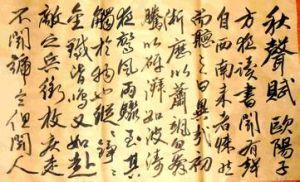 秋聲賦 歐陽子
方夜讀書聞有聲
自西南來者悚然
而聽之曰異哉初
淅瀝以蕭颯忽奔
騰以砰湃如波濤
夜驚風雨驟至其
觸於物也鏦〻錚〻
金鐵皆鳴又如赴
敵之兵銜枚疾走
不聞號令但聞人